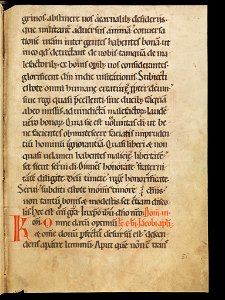 grinos abstinere uos a carnalib; desideriis
que militant aduersus animam. conuersa
tionem uram inter gentes habentes bonam. ut
in eo qd detractant de uobis tamquam de ma
lefactorib; ex bonis opib; uos considerantes
glorificent dm in die uisitationis. Subiecti
estote omni humane creature ppter dm.
siue regi quasi pcellenti. siue ducib; tamquam
ab eo missis. ad uindictam malefactor. laude
uero bonor. Quia sic est uoluntas di. ut be
ne facientes obmutescere faciatis impruden
tiu hominu ignorantia. Quasi liberi. & non
quasi uelamen habentes malicie libertate.
sed sicut serui di. Omnes honorate. frater
nitate diligite. dm timete. regem honorificate.
Serui subditi estote in omni timore dnis.
non tantu bonis & modestis. set etiam disco
lis. Hec est eni gra. In xpo ihu dno nro.
Omne datu optimum
& omne donu pfectu desursu est. descen
dens a patre luminu. Aput que non e tran